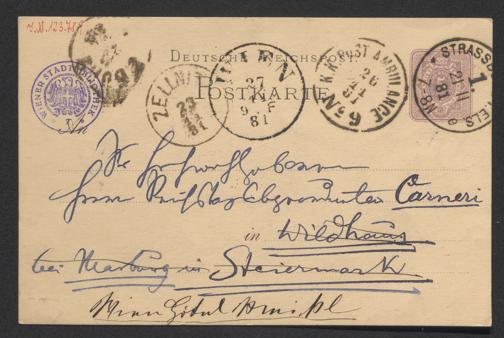 J.N. 123.718
DEUTSCHE REICHSPOST
POSTKARTE
WIENER STADTBIBLIOTHEK
ZELLNITZ
23
81
WIEN
27
9. F
81
K.K. POST AMBULANCE
No 9
26
81
STRASSBURG ELS
1.
21 11
81
An
Sr Hochwohlgeboren
Herrn Reichstagsabgeordneten Carneri
in Wildhaus
bei Marburg in Steiermark
Wien Hôtel